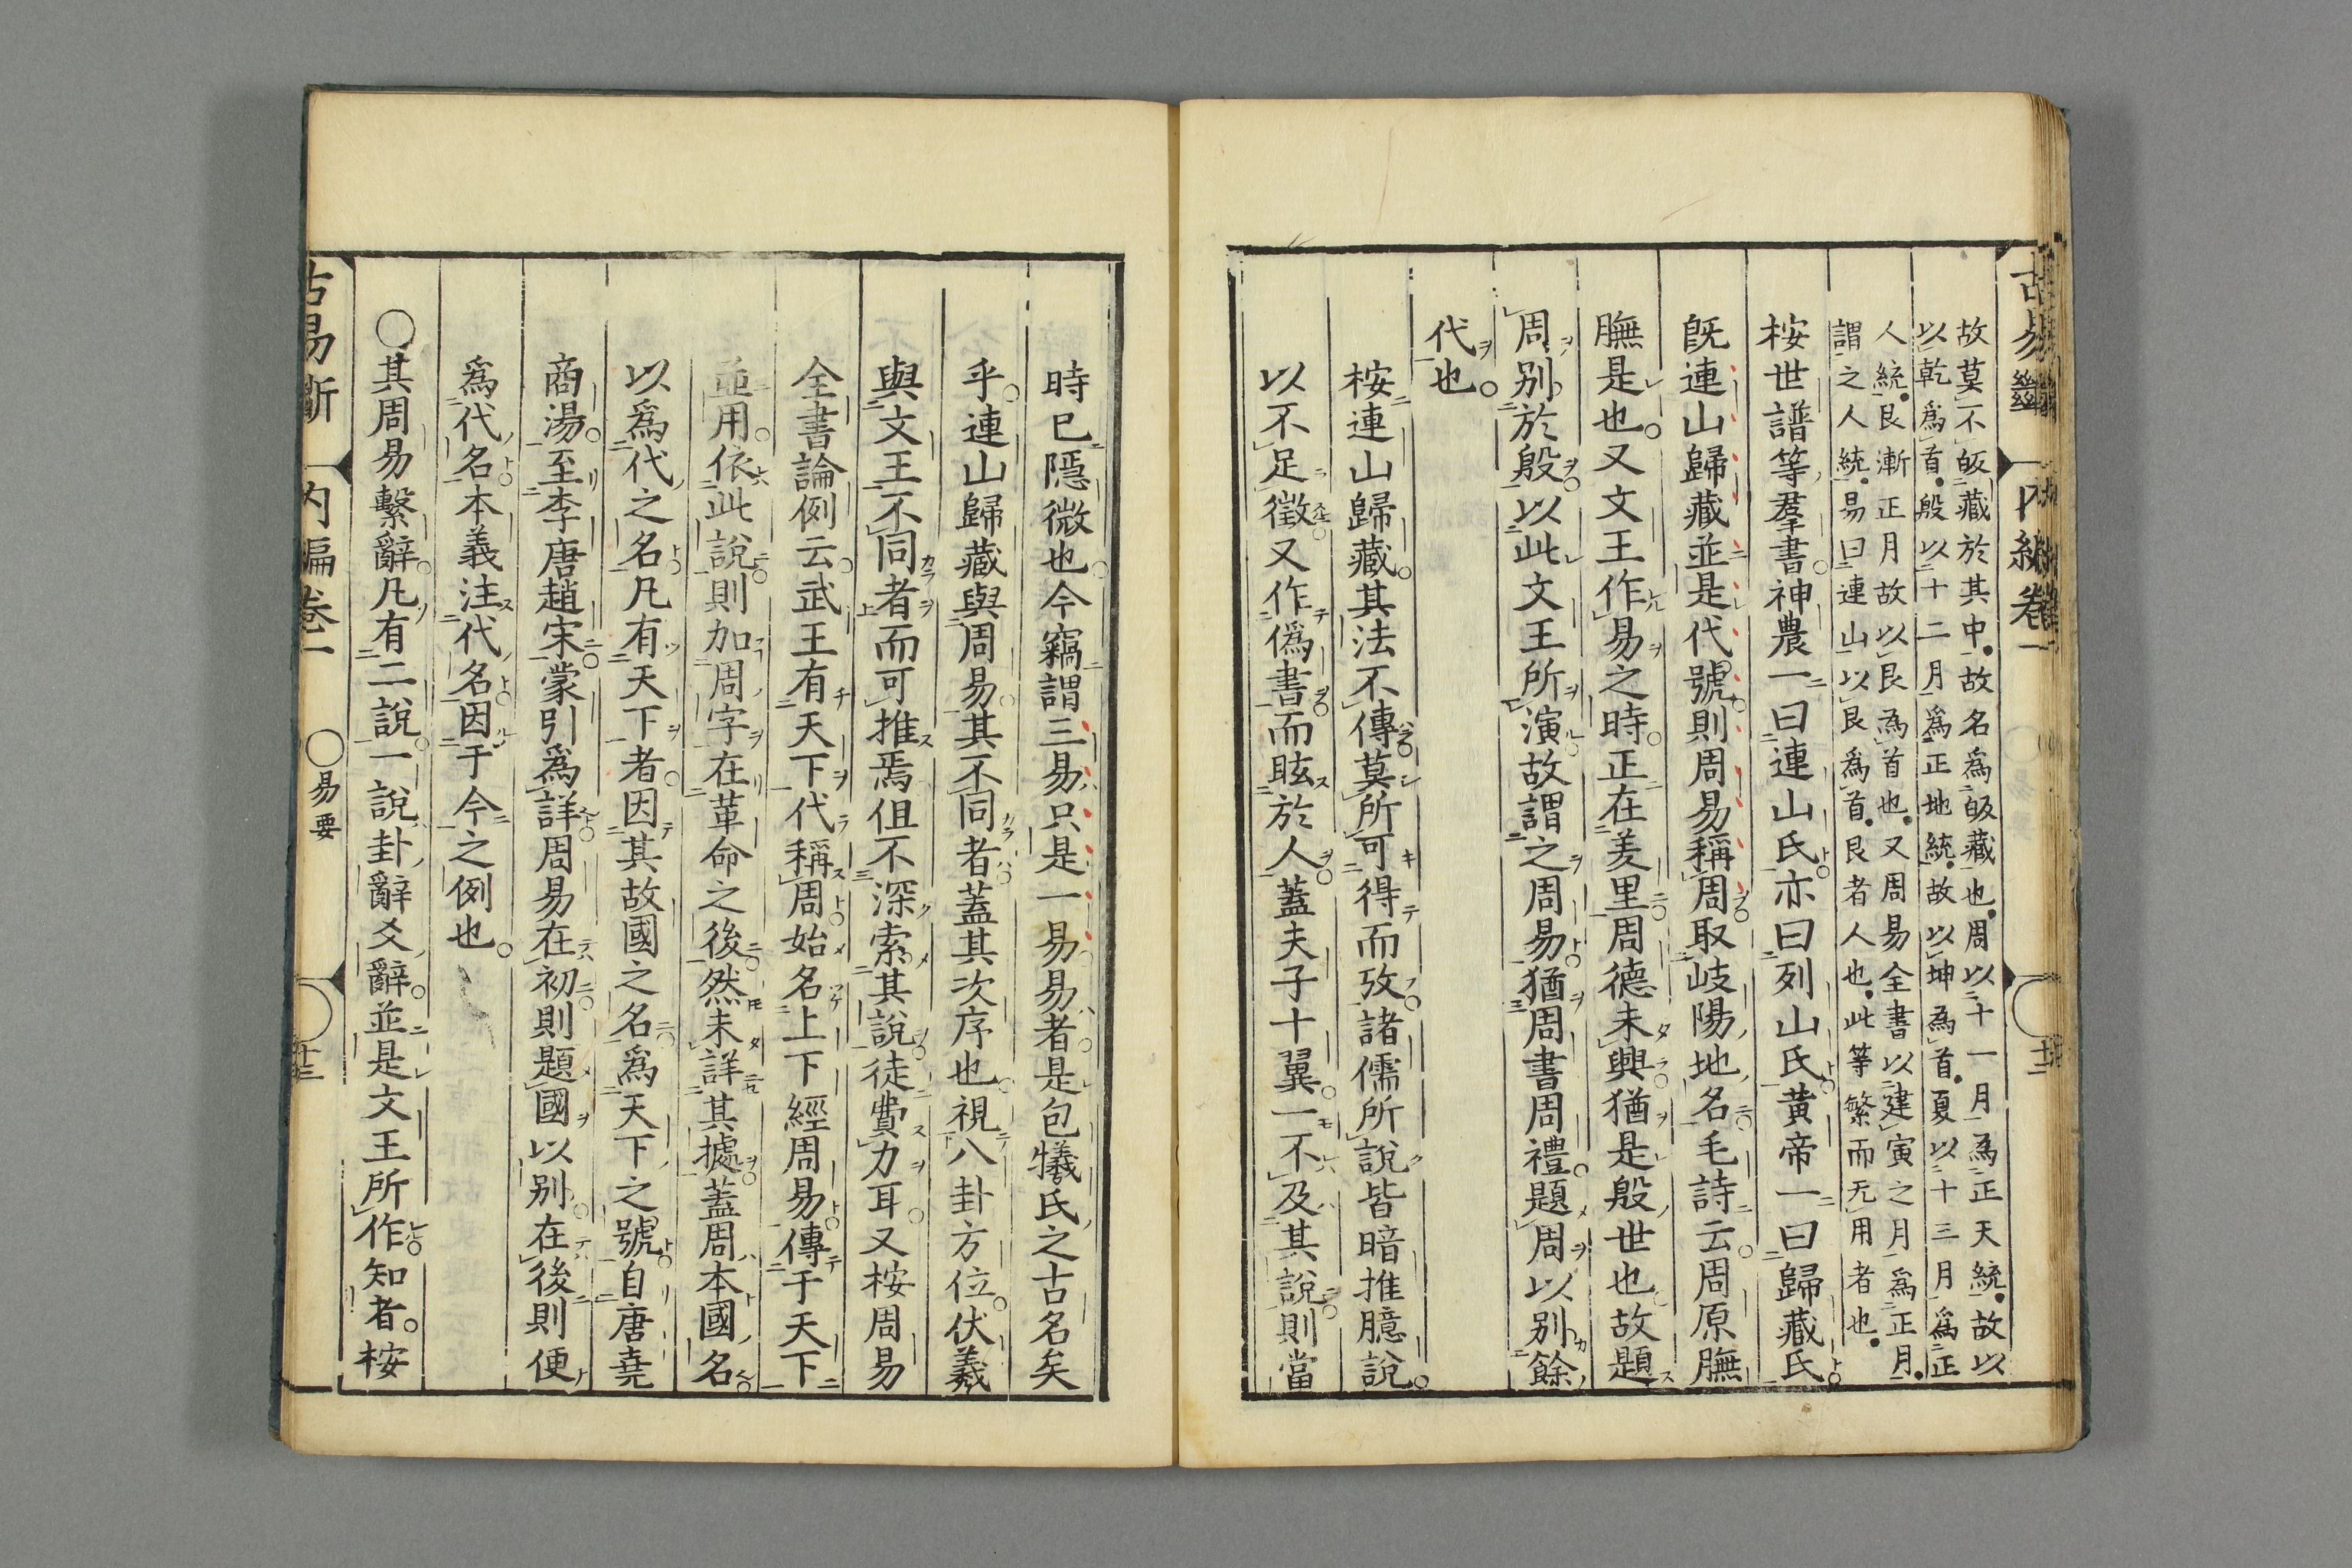 故莫不皈藏於其中故名爲皈藏也周以十一月爲正天統故以
以乾爲首殷以十二月爲正地統故以坤爲首夏以十三月爲正
人統艮漸正月故以艮爲首也又周易全書以建寅之月爲正月
謂之人統易曰連山以艮爲首艮者人也此等繁而无用者也
桉世譜等羣書神農一曰連山氏亦曰列山氏黄帝一曰歸藏氏
既連山歸藏並是代號則周易稱周取岐陽地名毛詩云周原膴
膴是也又文王作易之時正在羑里周德未興猶是殷世也故題
周別於殷以此文王所演故謂之周易猶周書周禮題周以別餘
代也
桉連山歸藏其法不傳莫所可得而攷諸儒所說皆暗推臆說
以不足徵又作僞書而眩於人蓋夫子十翼一不及其說則當
時已隱微也今竊謂三易只是一易易者是包犧氏之古名矣
乎連山歸藏與周易其不同者蓋其次序也視八卦方位伏羲
與文王不同者而可推焉但不深索其說徒費力耳又桉周易
全書論例云武王有天下代稱周始名上下經周易傳于天下
並用依此說則加周字在革命之後然未詳其據蓋周本國名
以爲代之名凡有天下者因其故國之名爲天下之號自唐堯
商湯至李唐趙宋蒙引爲詳周易在初則題國以別在後則便
爲代名本義注代名因于今之例也
〇其周易繫辭凡有二說一說卦辭爻辭並是文王所作知者桉
古易斷 内編卷一 〇易要 十三